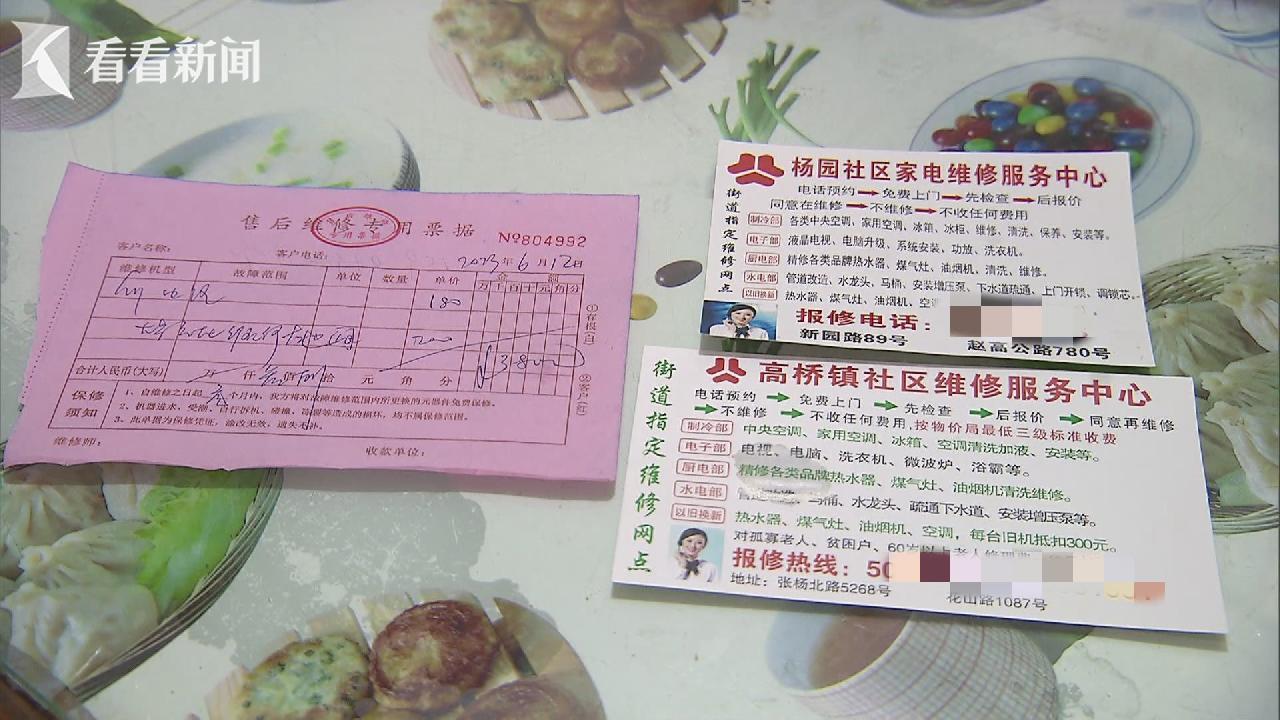 看看新闻
售后维修专用票据
№804992
客户名称:
客户电话:
2023年6月2日
维修机型 故障范围 单位 数量 单价 金额
万千百十元角分
180
200
380
合计人民币(大写) 万 仟 佰 拾 元 角 分
保修须知
1、自维修之日起 个月内,我方将对故障维修范围内所更换的元器件免费保修。
2、机器进水、受潮、自行拆机、碰撞、毒弱等造成的损坏,均不属保修范围。
3、此单据为保修凭证,涂改无效,遗失不补。
维修师:
收款单位:
①存根(白)
②客户(红)
杨园社区家电维修服务中心
街道指定维修网点
电话预约→免费上门→先检查→后报价
同意在维修→不维修→不收任何费用
制冷部 各类中央空调、家用空调、冰箱、冰柜、维修、清洗、保养、安装等。
电子部 液晶电视、电脑升级、系统安装、功放、洗衣机。
厨电部 精修各类品牌热水器、煤气灶、油烟机、清洗、维修。
水电部 管道改造、水龙头、马桶、安装增压泵、下水道疏通、上门开锁、调锁芯。
以旧换新 热水器、煤气灶、油烟机、空
报修电话:
新园路89号 赵高公路780号
高桥镇社区维修服务中心
街道指定维修网点
电话预约→免费上门→先检查→后报价→同意再维修
→不维修→不收任何费用,按物价局最低三级标准收费
制冷部 中央空调、家用空调、冰箱、空调清洗加液、安装等。
电子部 电视、电脑、洗衣机、微波炉、浴霸等。
厨电部 精修各类品牌热水器、煤气灶、油烟机清洗维修。
水电部 管道改造、马桶、水龙头、疏通下水道、安装增压泵等。
以旧换新 热水器、煤气灶、油烟机、空调,每台旧机抵扣300元。
对孤寡老人、贫困户、60岁以上老人修理费
报修热线:50
地址:张杨北路5268号 花山路1087号